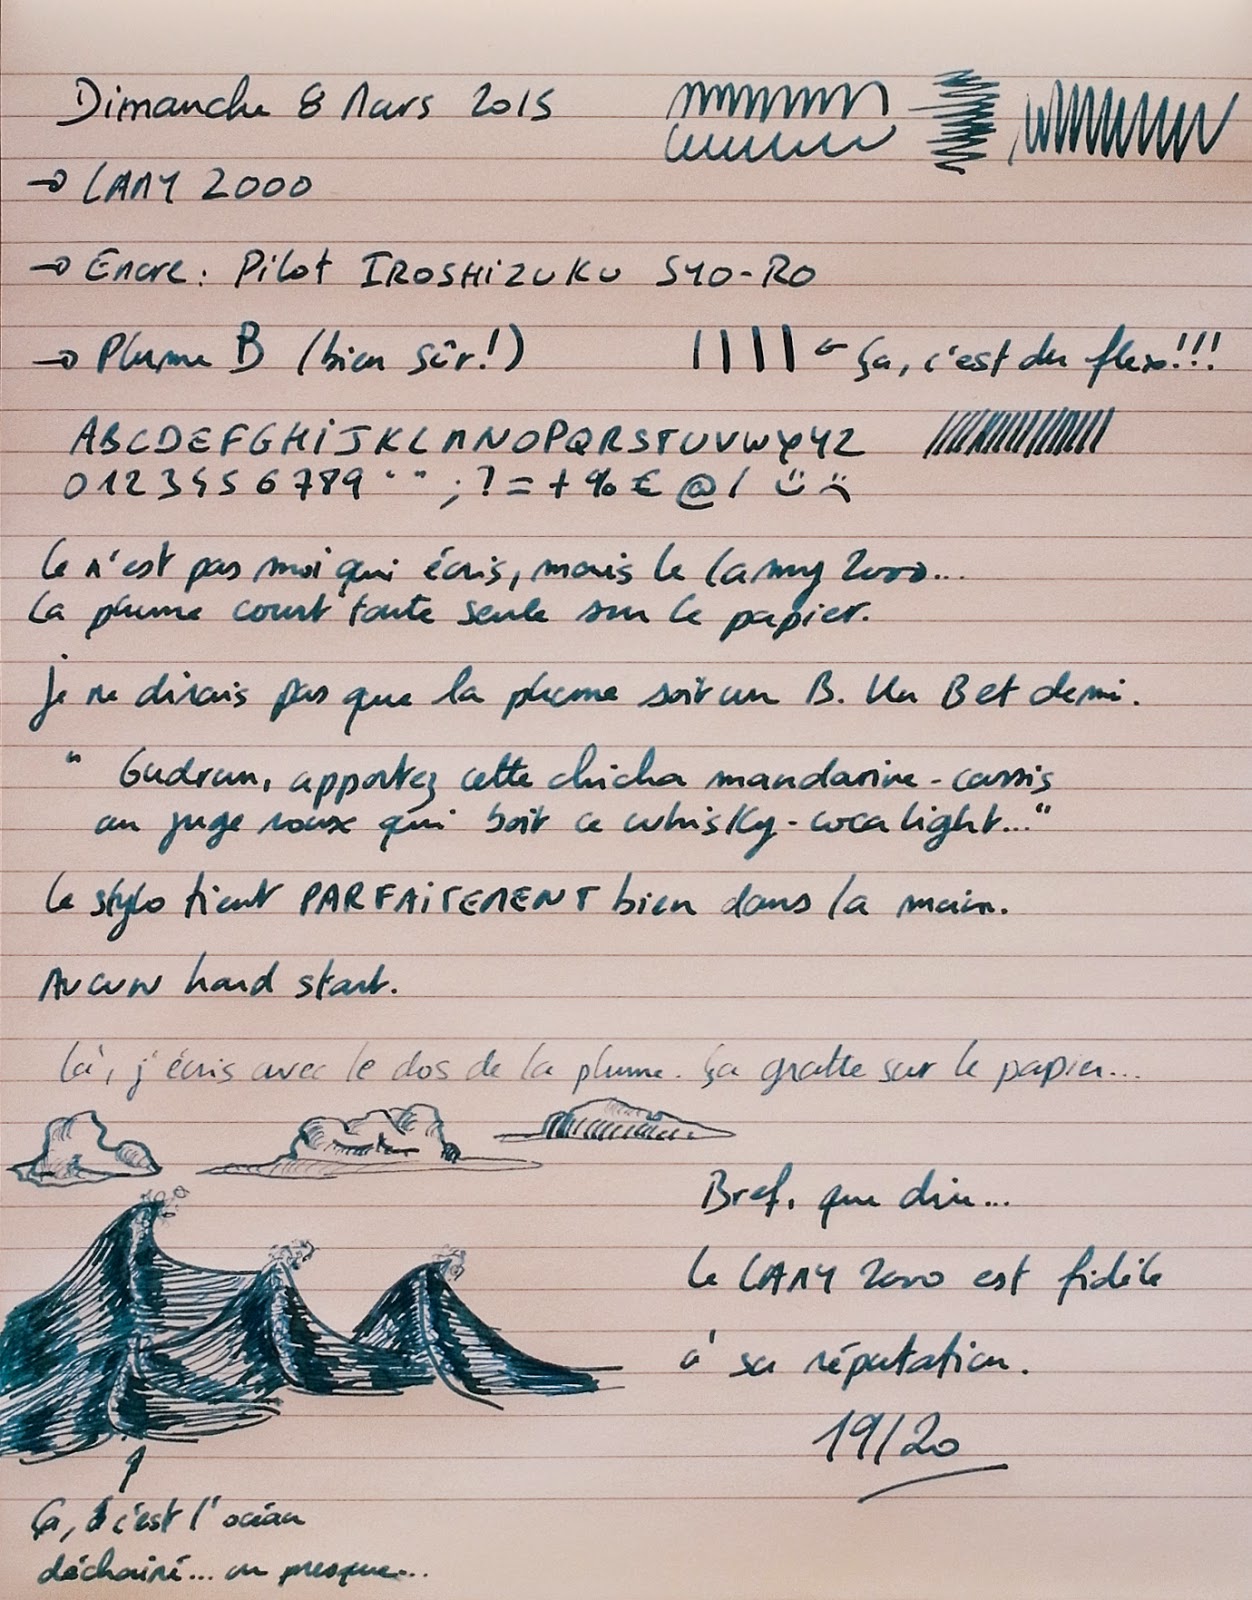 Dimanche 8 Mars 2015
→ LAMY 2000
→ Encre : Pilot IROSHIZUKU SYO-RO
→ Plume B (bien sûr!)
← Ça, c'est du flex!!!
ABCDEFGHiJKLMNOPQRSTUVWXYZ
0123456789 ' " ; ? = + % € @ / ☺ ☹
Ce n'est pas moi qui écris, mais le Lamy 2000...
La plume court toute seule sur le papier.
Je ne dirais pas que la plume soit un B. Un B et demi.
" Gudrun, apportez cette chicha mandarine-cassis
au juge roux qui boit ce whisky-coca light..."
Le stylo tient PARFAiTEMENT bien dans la main.
AUCUN hard start.
Là, j'écris avec le dos de la plume. Ça gratte sur le papier...
Bref, que dire...
Le LAMY 2000 est fidèle
à sa réputation.
19/20
Ça, c'est l'océan
déchainé... ou presque...